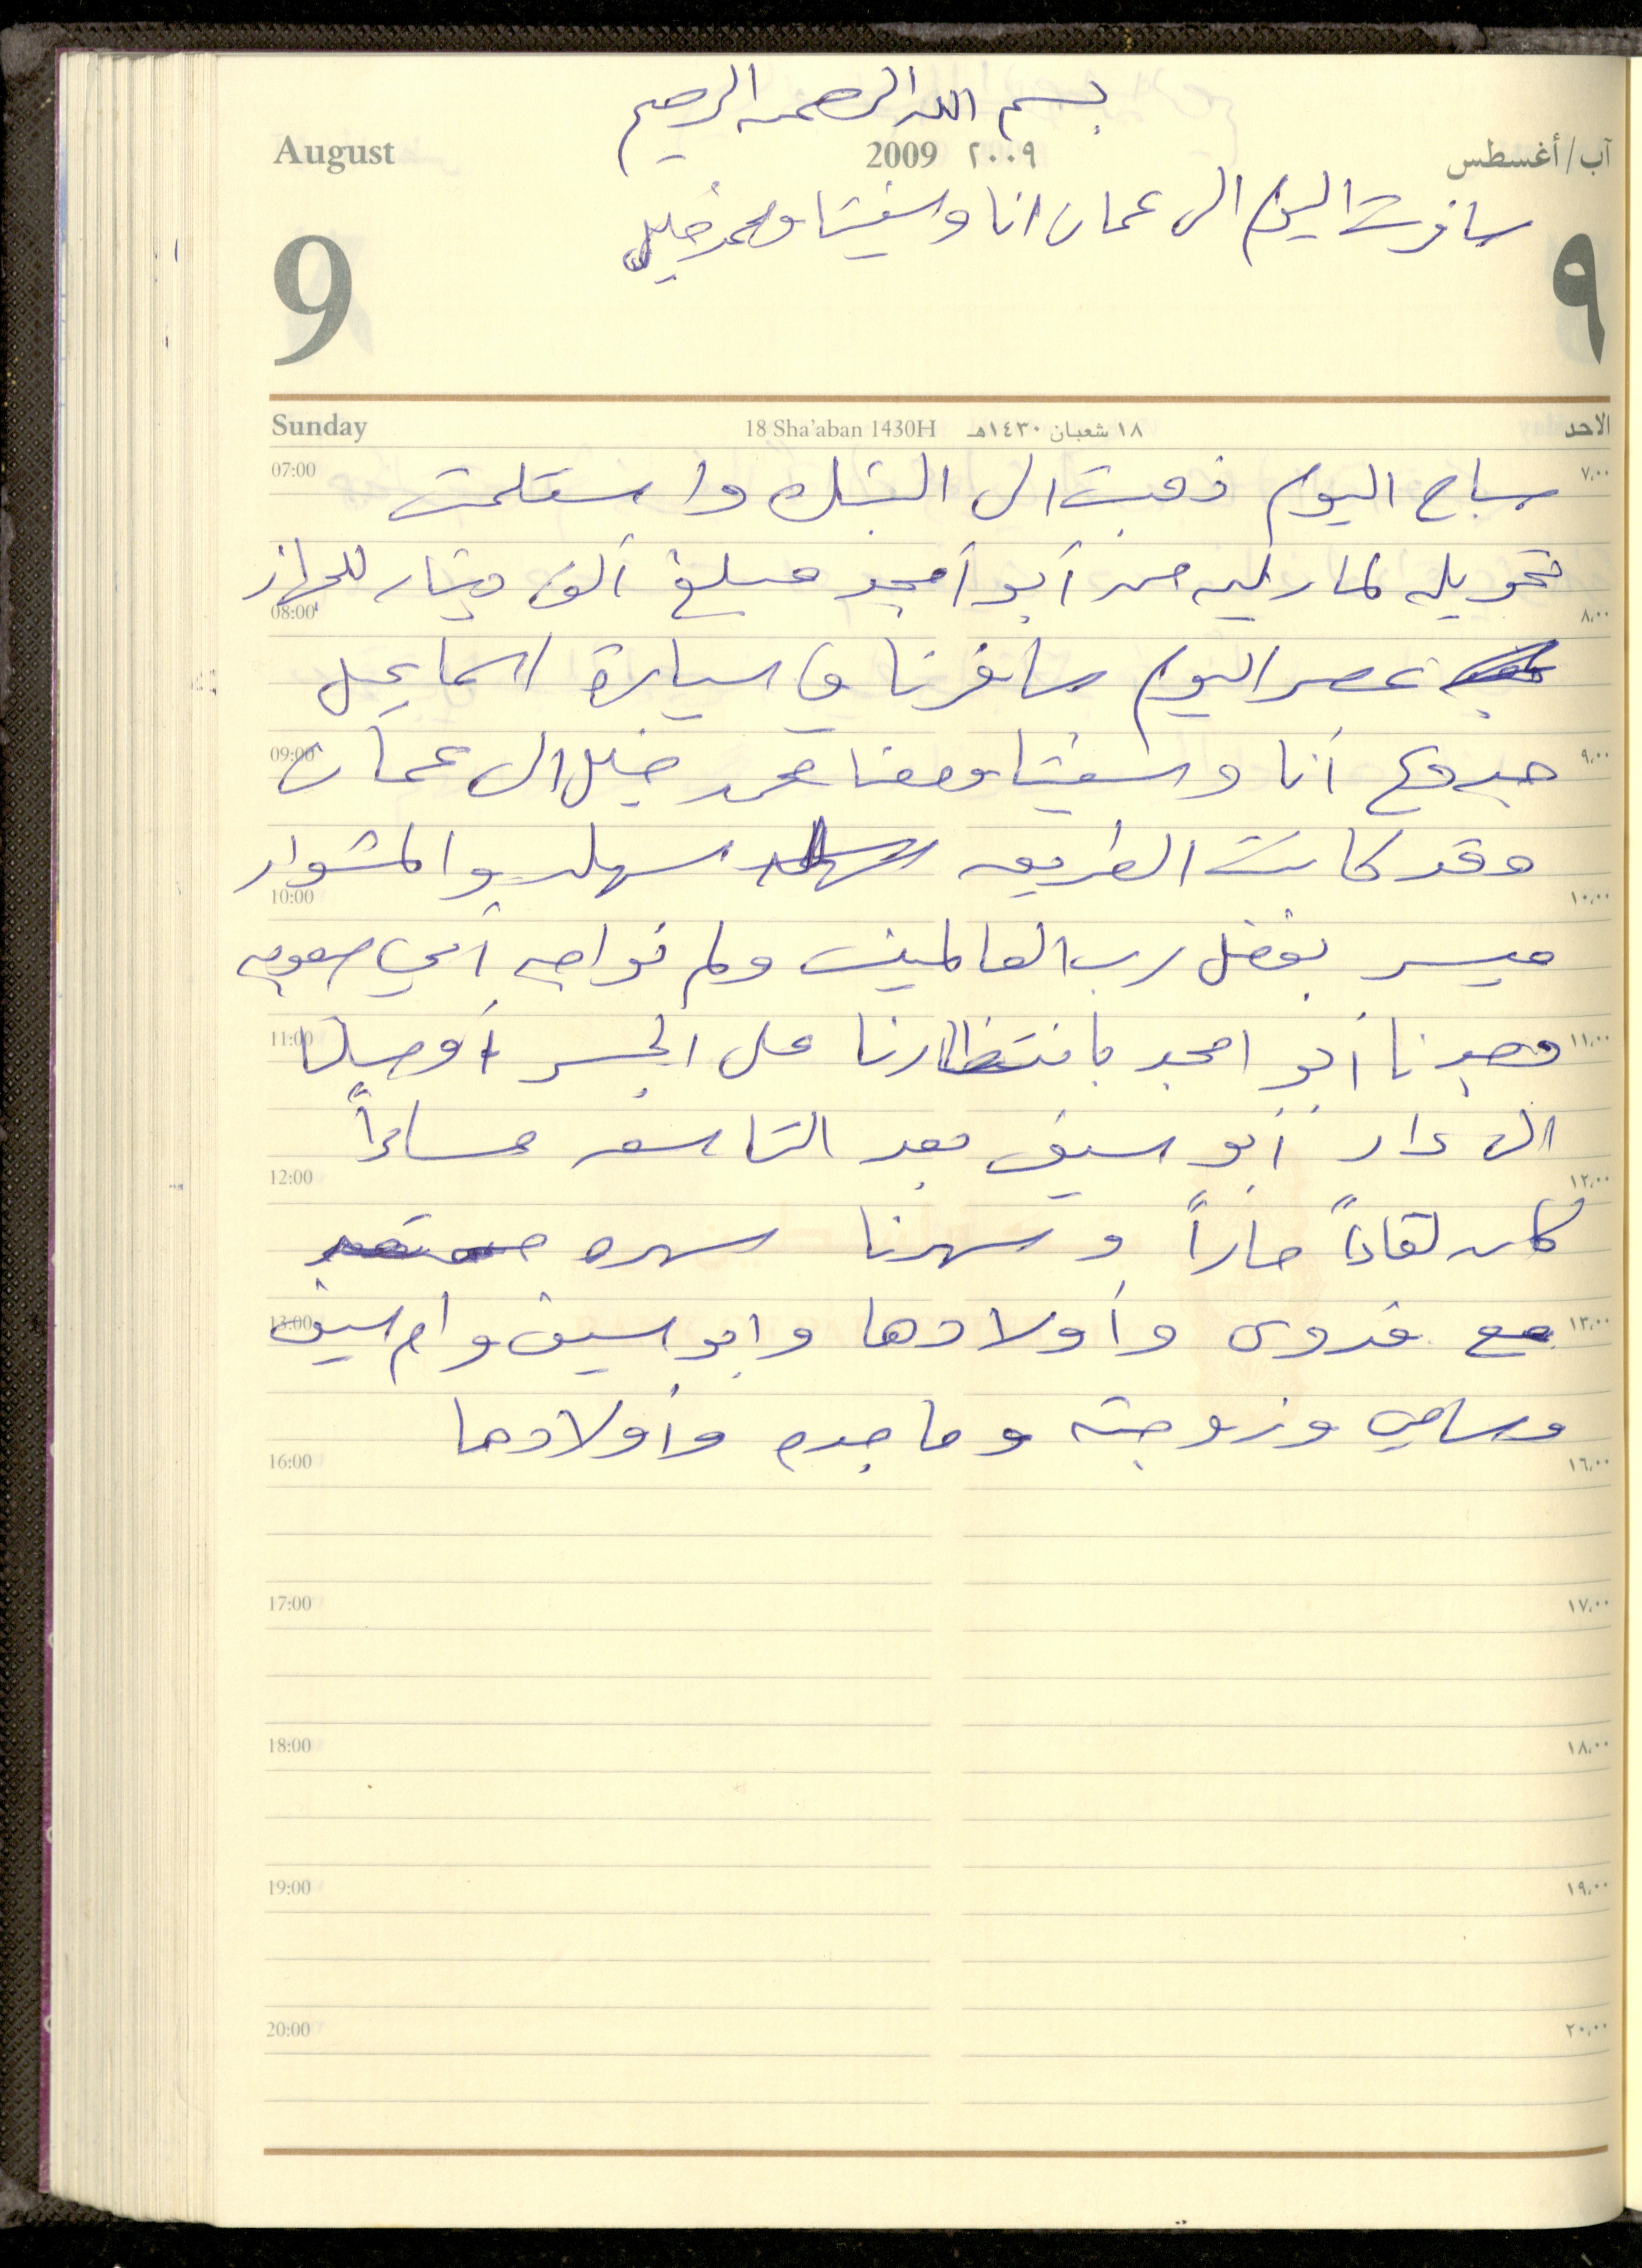 بسم الله الرحمن الرحيم
August 2009 ٢٠٠٩ آب/أغسطس
سافرت اليوم الى عمان انا وسفيتا ومحمد خليل
9 ٩
Sunday 18 Sha'aban 1430H ١٨ شعبان ١٤٣٠هـ الاحد
07:00 ٧,٠٠
صباح اليوم ذهبت الى البنك واستلمت
تحويله لمارليه من أبو أمجد مبلغ ألف دينار للجهاز
08:00 ٨,٠٠
عصر اليوم سافرنا في سيارة اسماعيل
09:00 ٩,٠٠
جدوع أنا وسفيتا ومعنا محمد خليل الى عمان
وقد كانت الطريق سهله والمشوار
10:00 ١٠,٠٠
ميسر بفضل رب العالمين ولم نواجه أي صعوبه
11:00 ١١,٠٠
وجدنا أبو امجد بانتظارنا على الجسر أوصلنا
الى دار أبو سيف بعد التاسعه مساءاً
12:00 ١٢,٠٠
كان لقاءاً حاراً وسهرنا سهره
13:00 ١٣,٠٠
مع فدوى وأولادها وابو سيف وام سيف
وسامي وزوجته وماجده وأولادها
16:00 ١٦,٠٠
17:00 ١٧,٠٠
18:00 ١٨,٠٠
19:00 ١٩,٠٠
20:00 ٢٠,٠٠